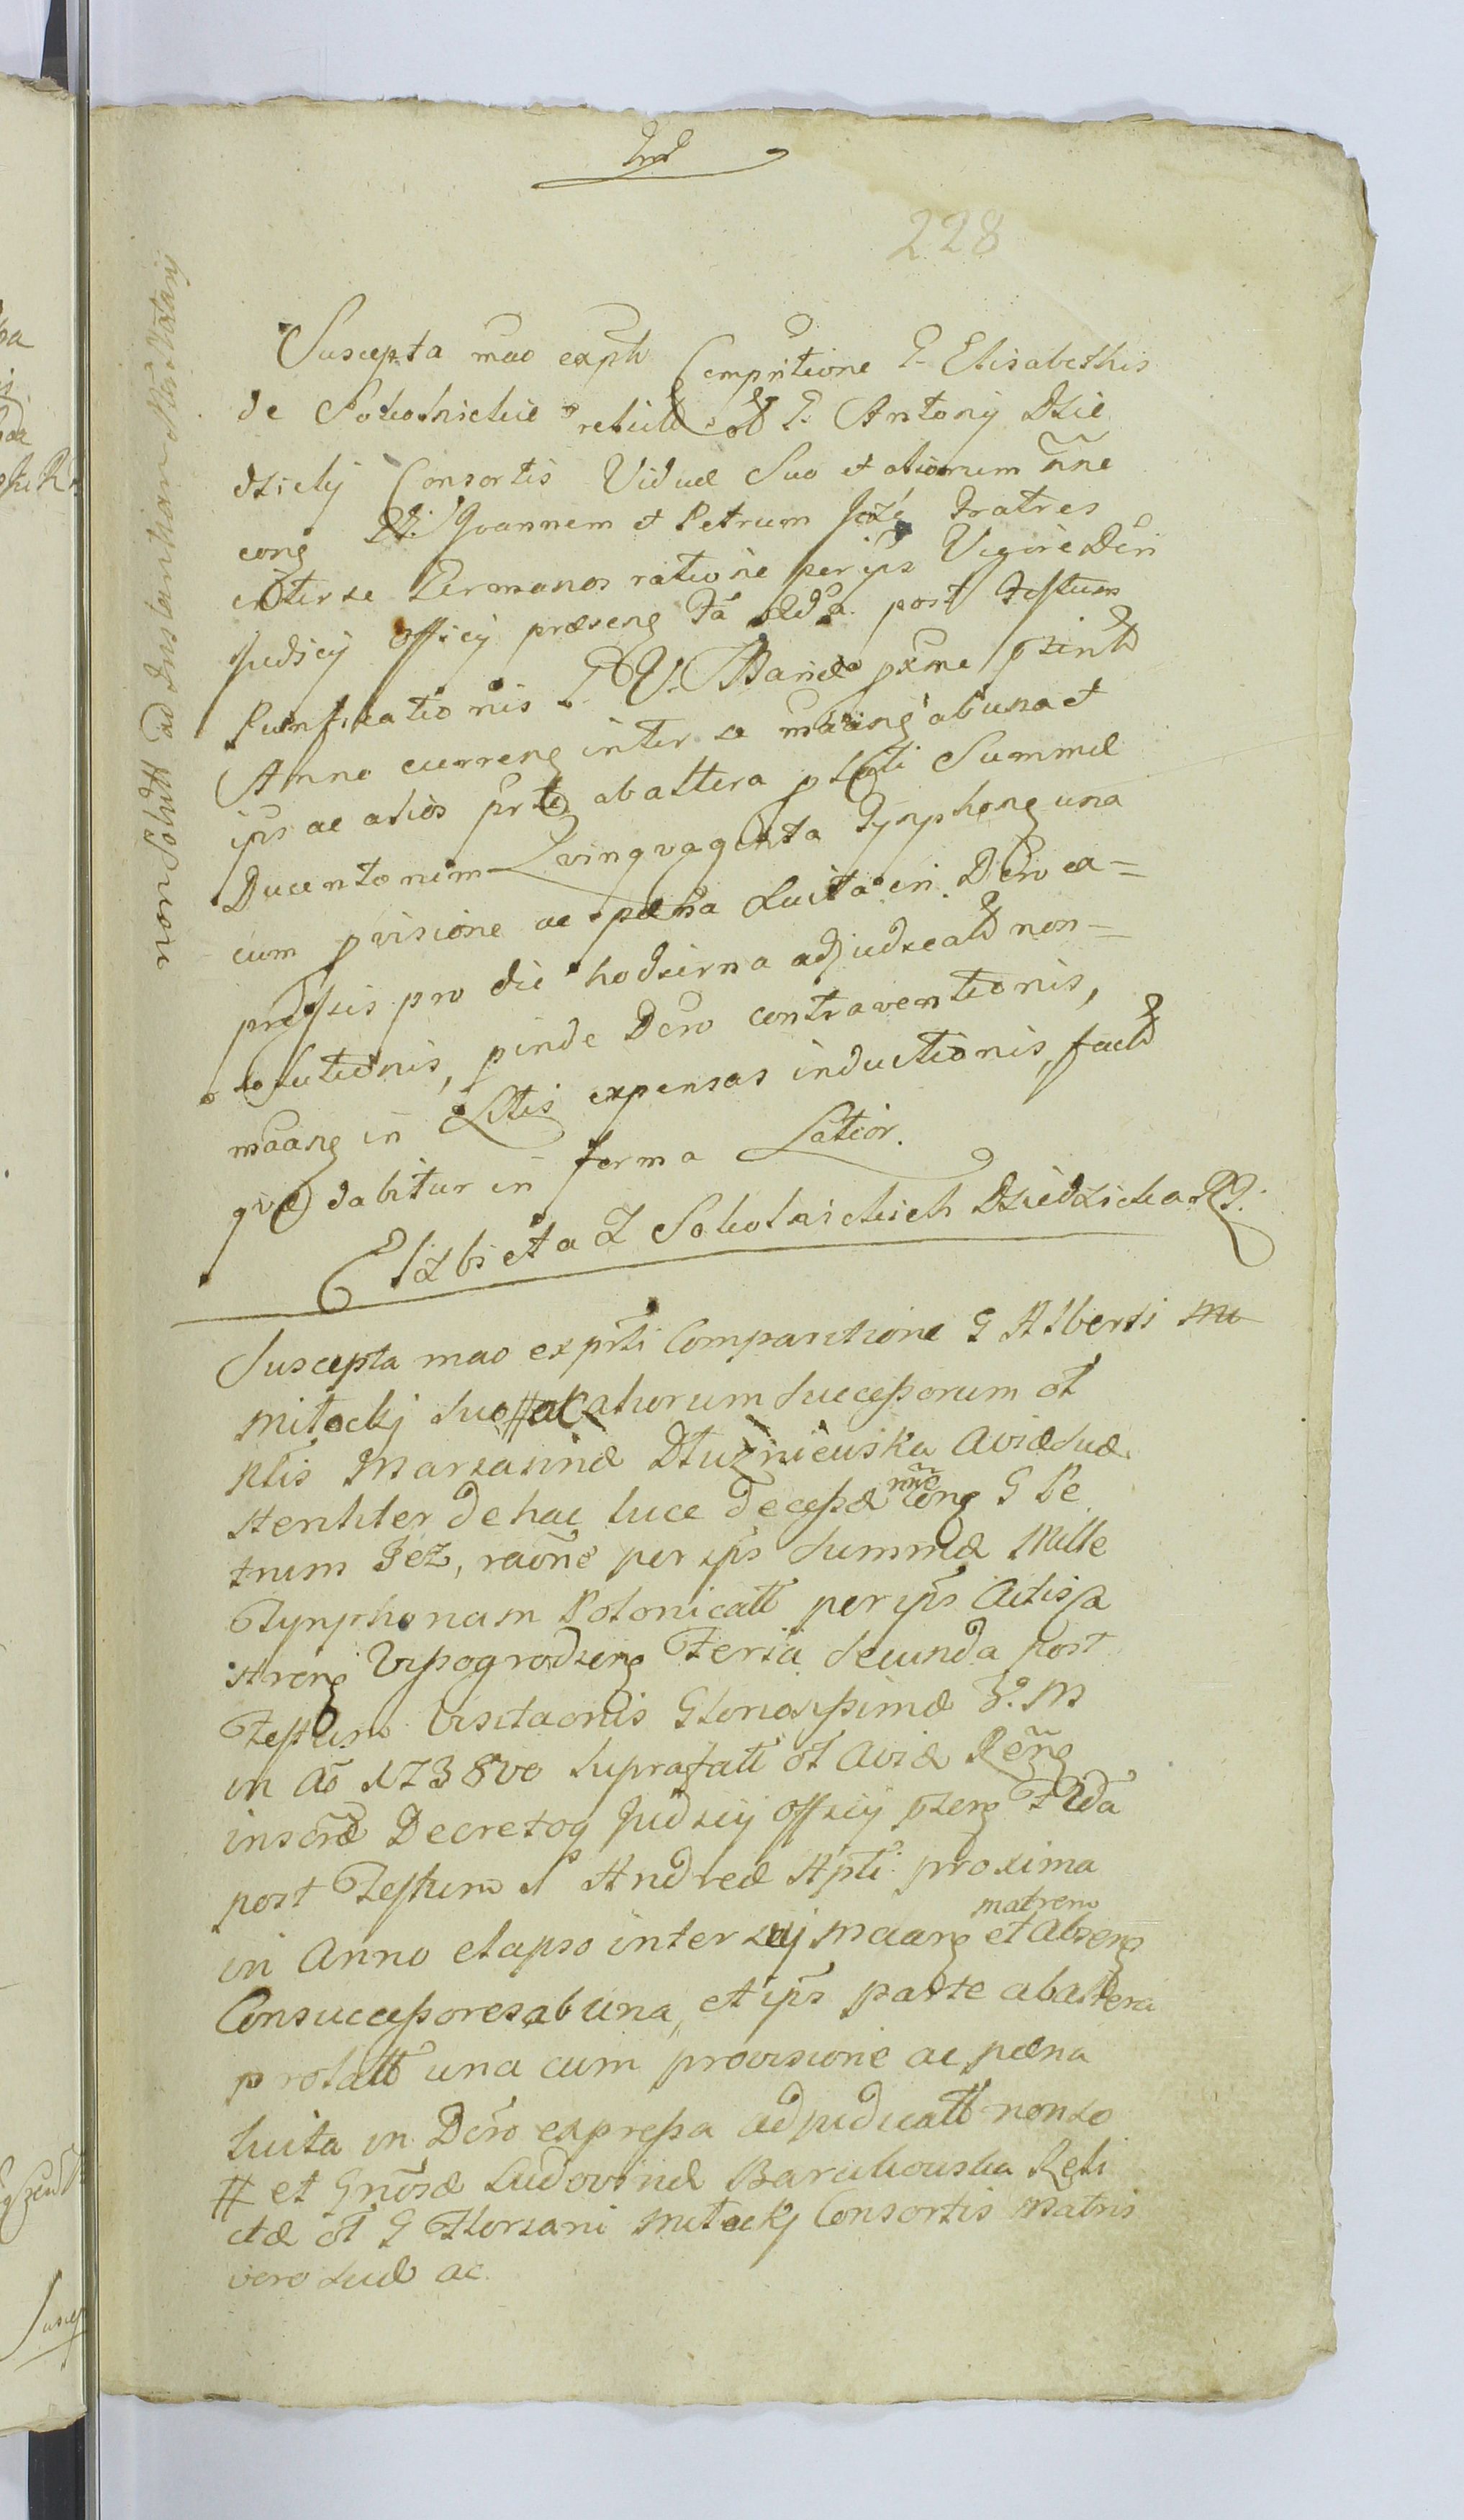 228
non Solutt ad Instantiam
Suscepta mao exph Compritione G. Elisabethis
de Sokolnickie relictt ol G. Antonij Dzie
dzickj Consortis Viduæ Suo et aliorum nñe
cong GG. Joannem et Petrum Jeże Fratres
inter se Germanos ratione per ips Vigore Dcri
Judicij officij præseng Fa 2da post Festum
Purificationis B V. Mariæ pxme pzintt
Anno curreng inter se maang ab una et
ips ac alios prte ab altera plati Summæ
Ducentorum Qvinqvaginta Tynphong una
cum pvisione ac pæna Luita in Dcro ex=
pressis pro die hodierna adjudicatt non=
solutionis, pinde Dcro contraventionis,
maang in Litis expensas inductionis, factt
qvæ dabitur in forma Latior.
Elzbieta Z Sokolnickich Dziedzicka
Suscepta mao exprti Comparitione G Alberti
Mitockj suo # ac aliorum Successorum ol
Ptis Mariannæ Dłużniewska Aviæ suæ
steriliter de hac luce decessæ nñe cong G Pe
trum Jeż, raoñe per ips Summæ Mille
Tynphonam Polonicatt per ips Actis pa
streng Vyssogrodieng Feria Secunda post
Festum Visitaonis Gloriosissimæ V. M
in Aõ 1738vo suprafatt ol Aviæ Reñg
inscræ Decretog Judicij Officij pzeng F 2da
post Festum S Andreæ Apti proxima
in Anno elapso inter maang matrem et absens
Consuccessores ab una, et ips parte ab altera
prolatt una cum provisione ac pæna
luita in Dcro expressa adjudicatt nonso
# et Gnosæ Ludovinæ Barcikowska Reli
ctæ ol G Floriani Mitockj Consortis Matris
vero suæ ac